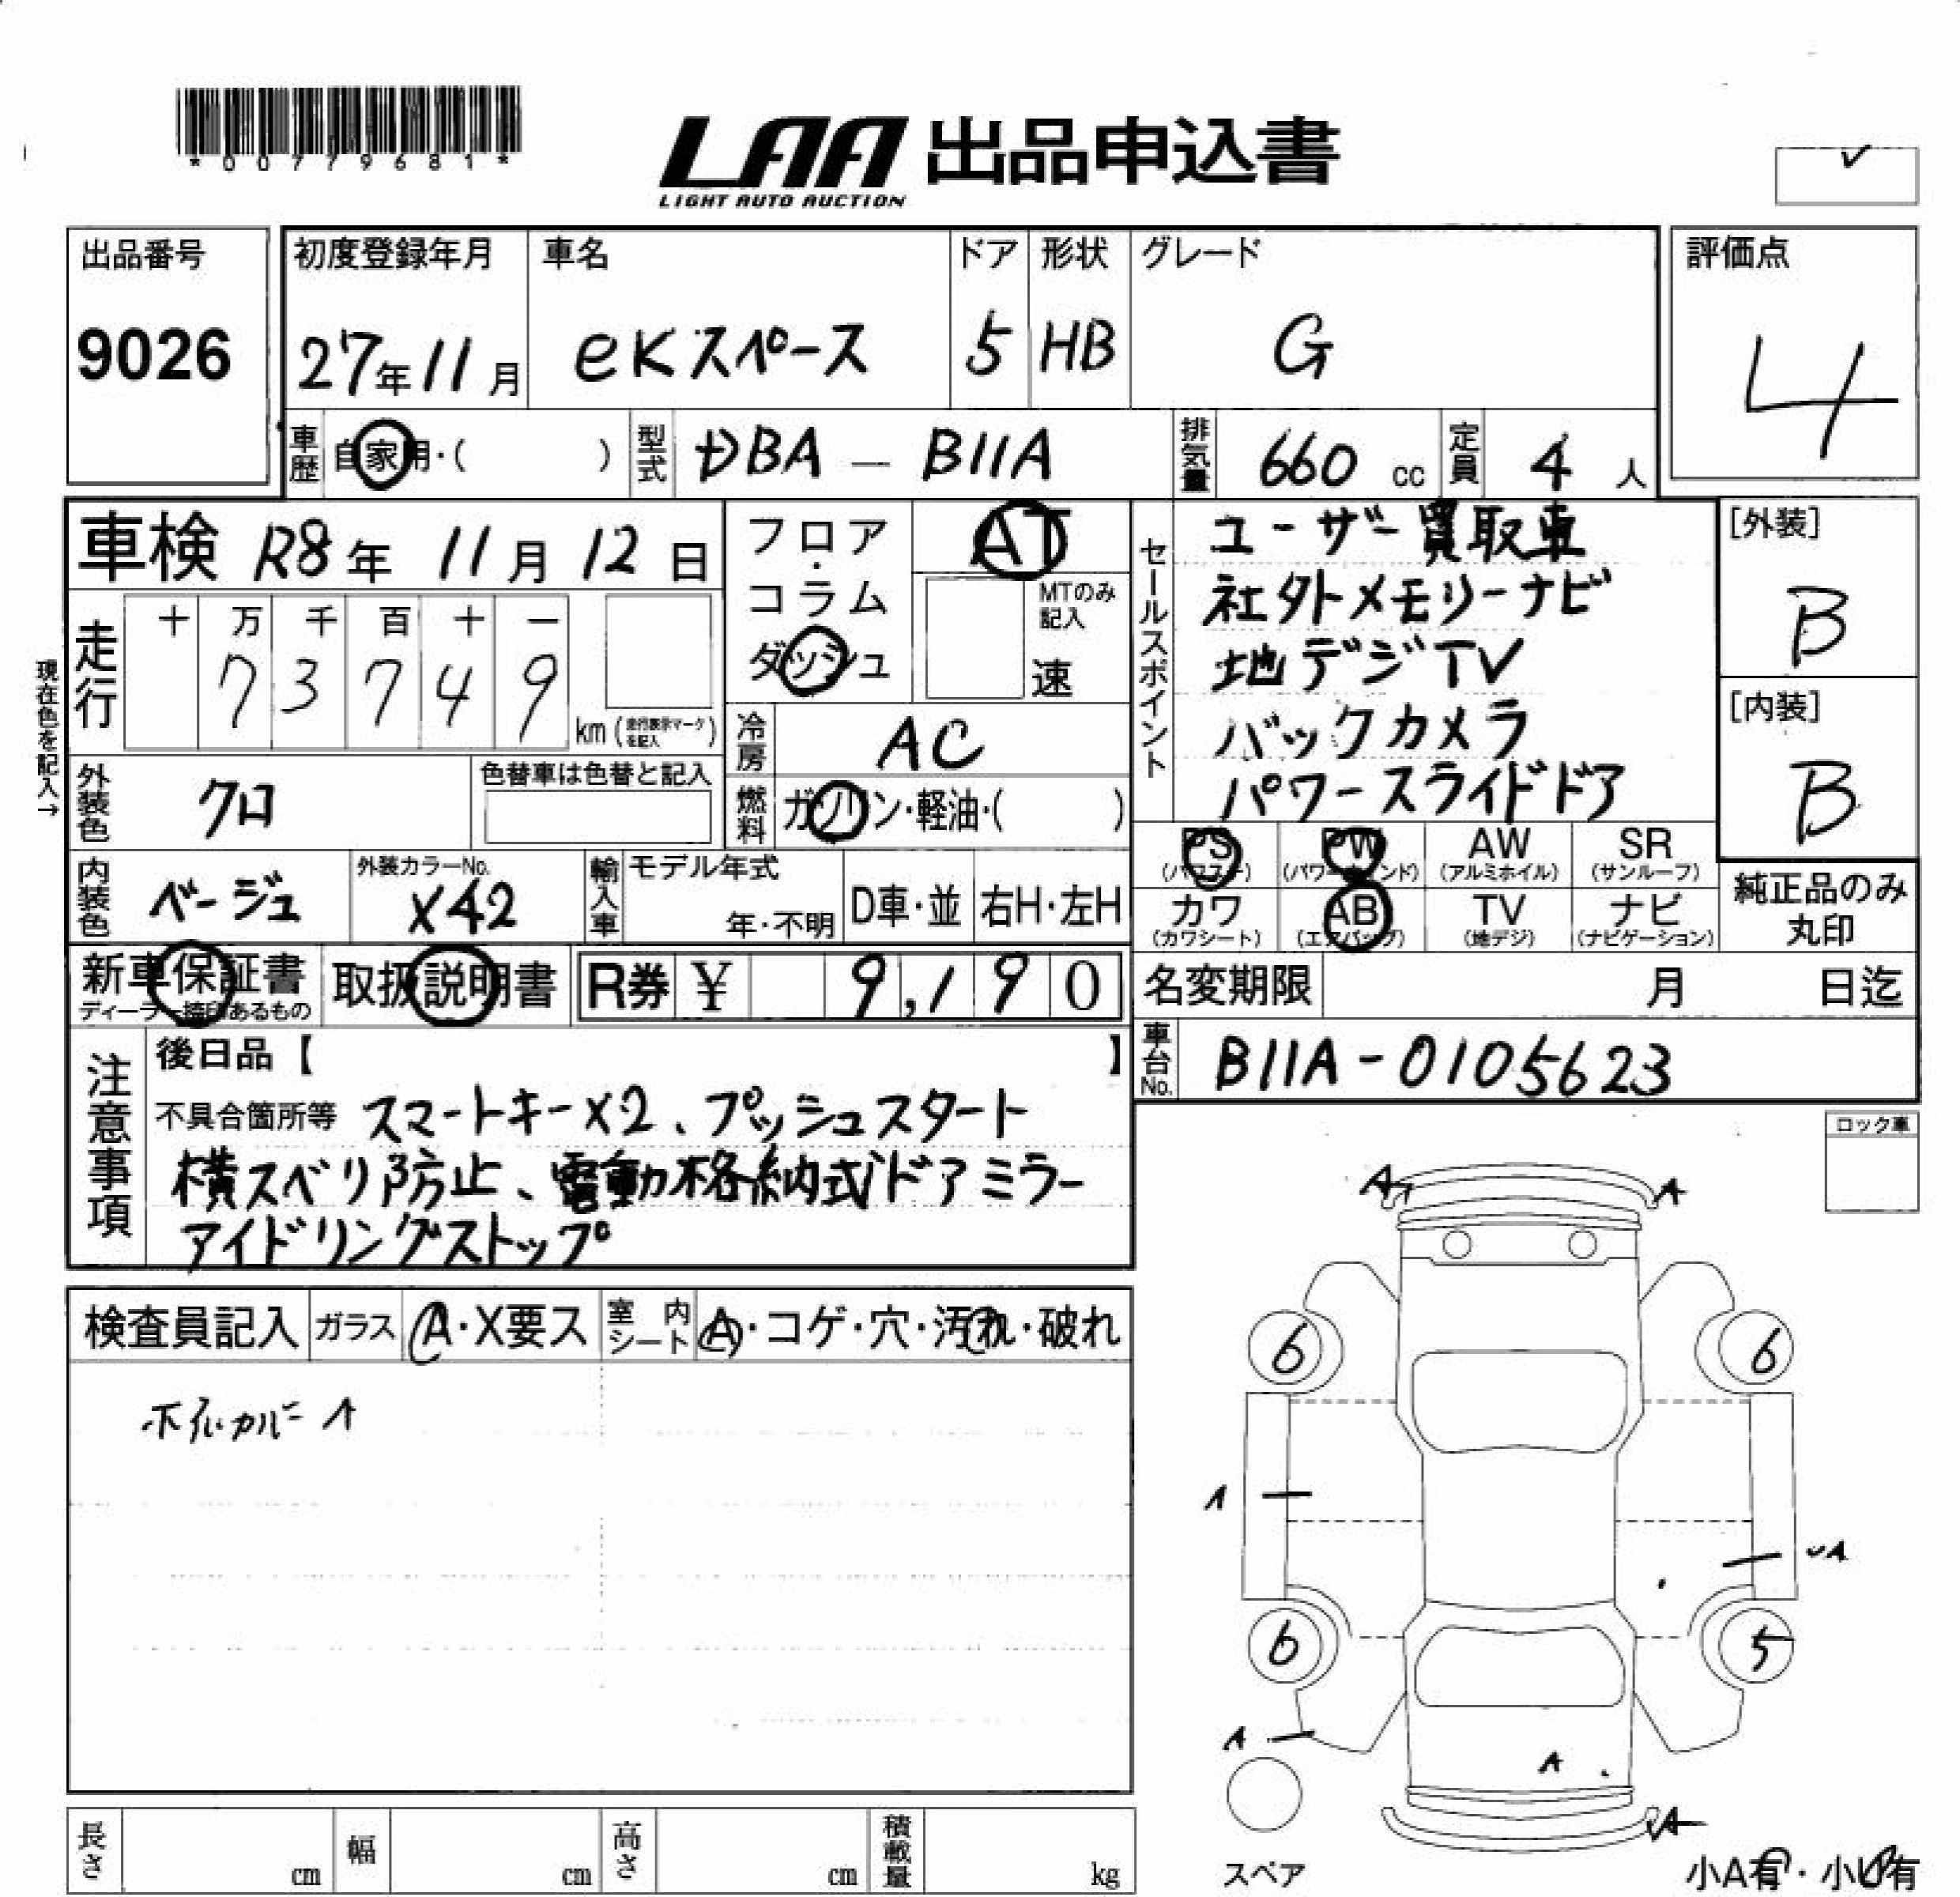 *00779681*
LAA 出品申込書
LIGHT AUTO AUCTION
出品番号
9026
初度登録年月
27年11月
車名
eKスペース
ドア
5
形状
HB
グレード
G
評価点
4
車歴 自家用・( )
型式 DBA - B11A
排気量 660 cc
定員 4 人
車検 R8年 11月 12日
現在色を記入→
走行
十 万 千 百 十 一
7 3 7 4 9
km (走行表示マークを記入)
フロア・コラム
ダッシュ
AT
MTのみ記入
速
冷房 AC
燃料 ガソリン・軽油・( )
外装色 クロ
色替車は色替と記入
内装色 ベージュ
外装カラーNo.
X42
輸入車 モデル年式
年・不明
D車・並
右H・左H
セールスポイント
ユーザー買取車
社外メモリーナビ
地デジTV
バックカメラ
パワースライドドア
[外装]
B
[内装]
B
PS (パワステ)
PW (パワーウインド)
AW (アルミホイル)
SR (サンルーフ)
カワ (カワシート)
AB (エアバッグ)
TV (地デジ)
ナビ (ナビゲーション)
純正品のみ
丸印
新車保証書
ディーラー捺印あるもの
取扱説明書
R券 ¥ 9,190
名変期限 月 日迄
車台No. B11A-0105623
注意事項
後日品【 】
不具合箇所等 スマートキーX2、プッシュスタート
横スベリ防止、電動格納式ドアミラー
アイドリングストップ
ロック車
検査員記入
ガラス A・X要ス
室内シート A・コゲ・穴・汚れ・破れ
ホイルカバー A
A A
6 6
A
A
6 5
A
A
A
スペア
小A有・小U有
長さ cm
幅 cm
高さ cm
積載量 kg